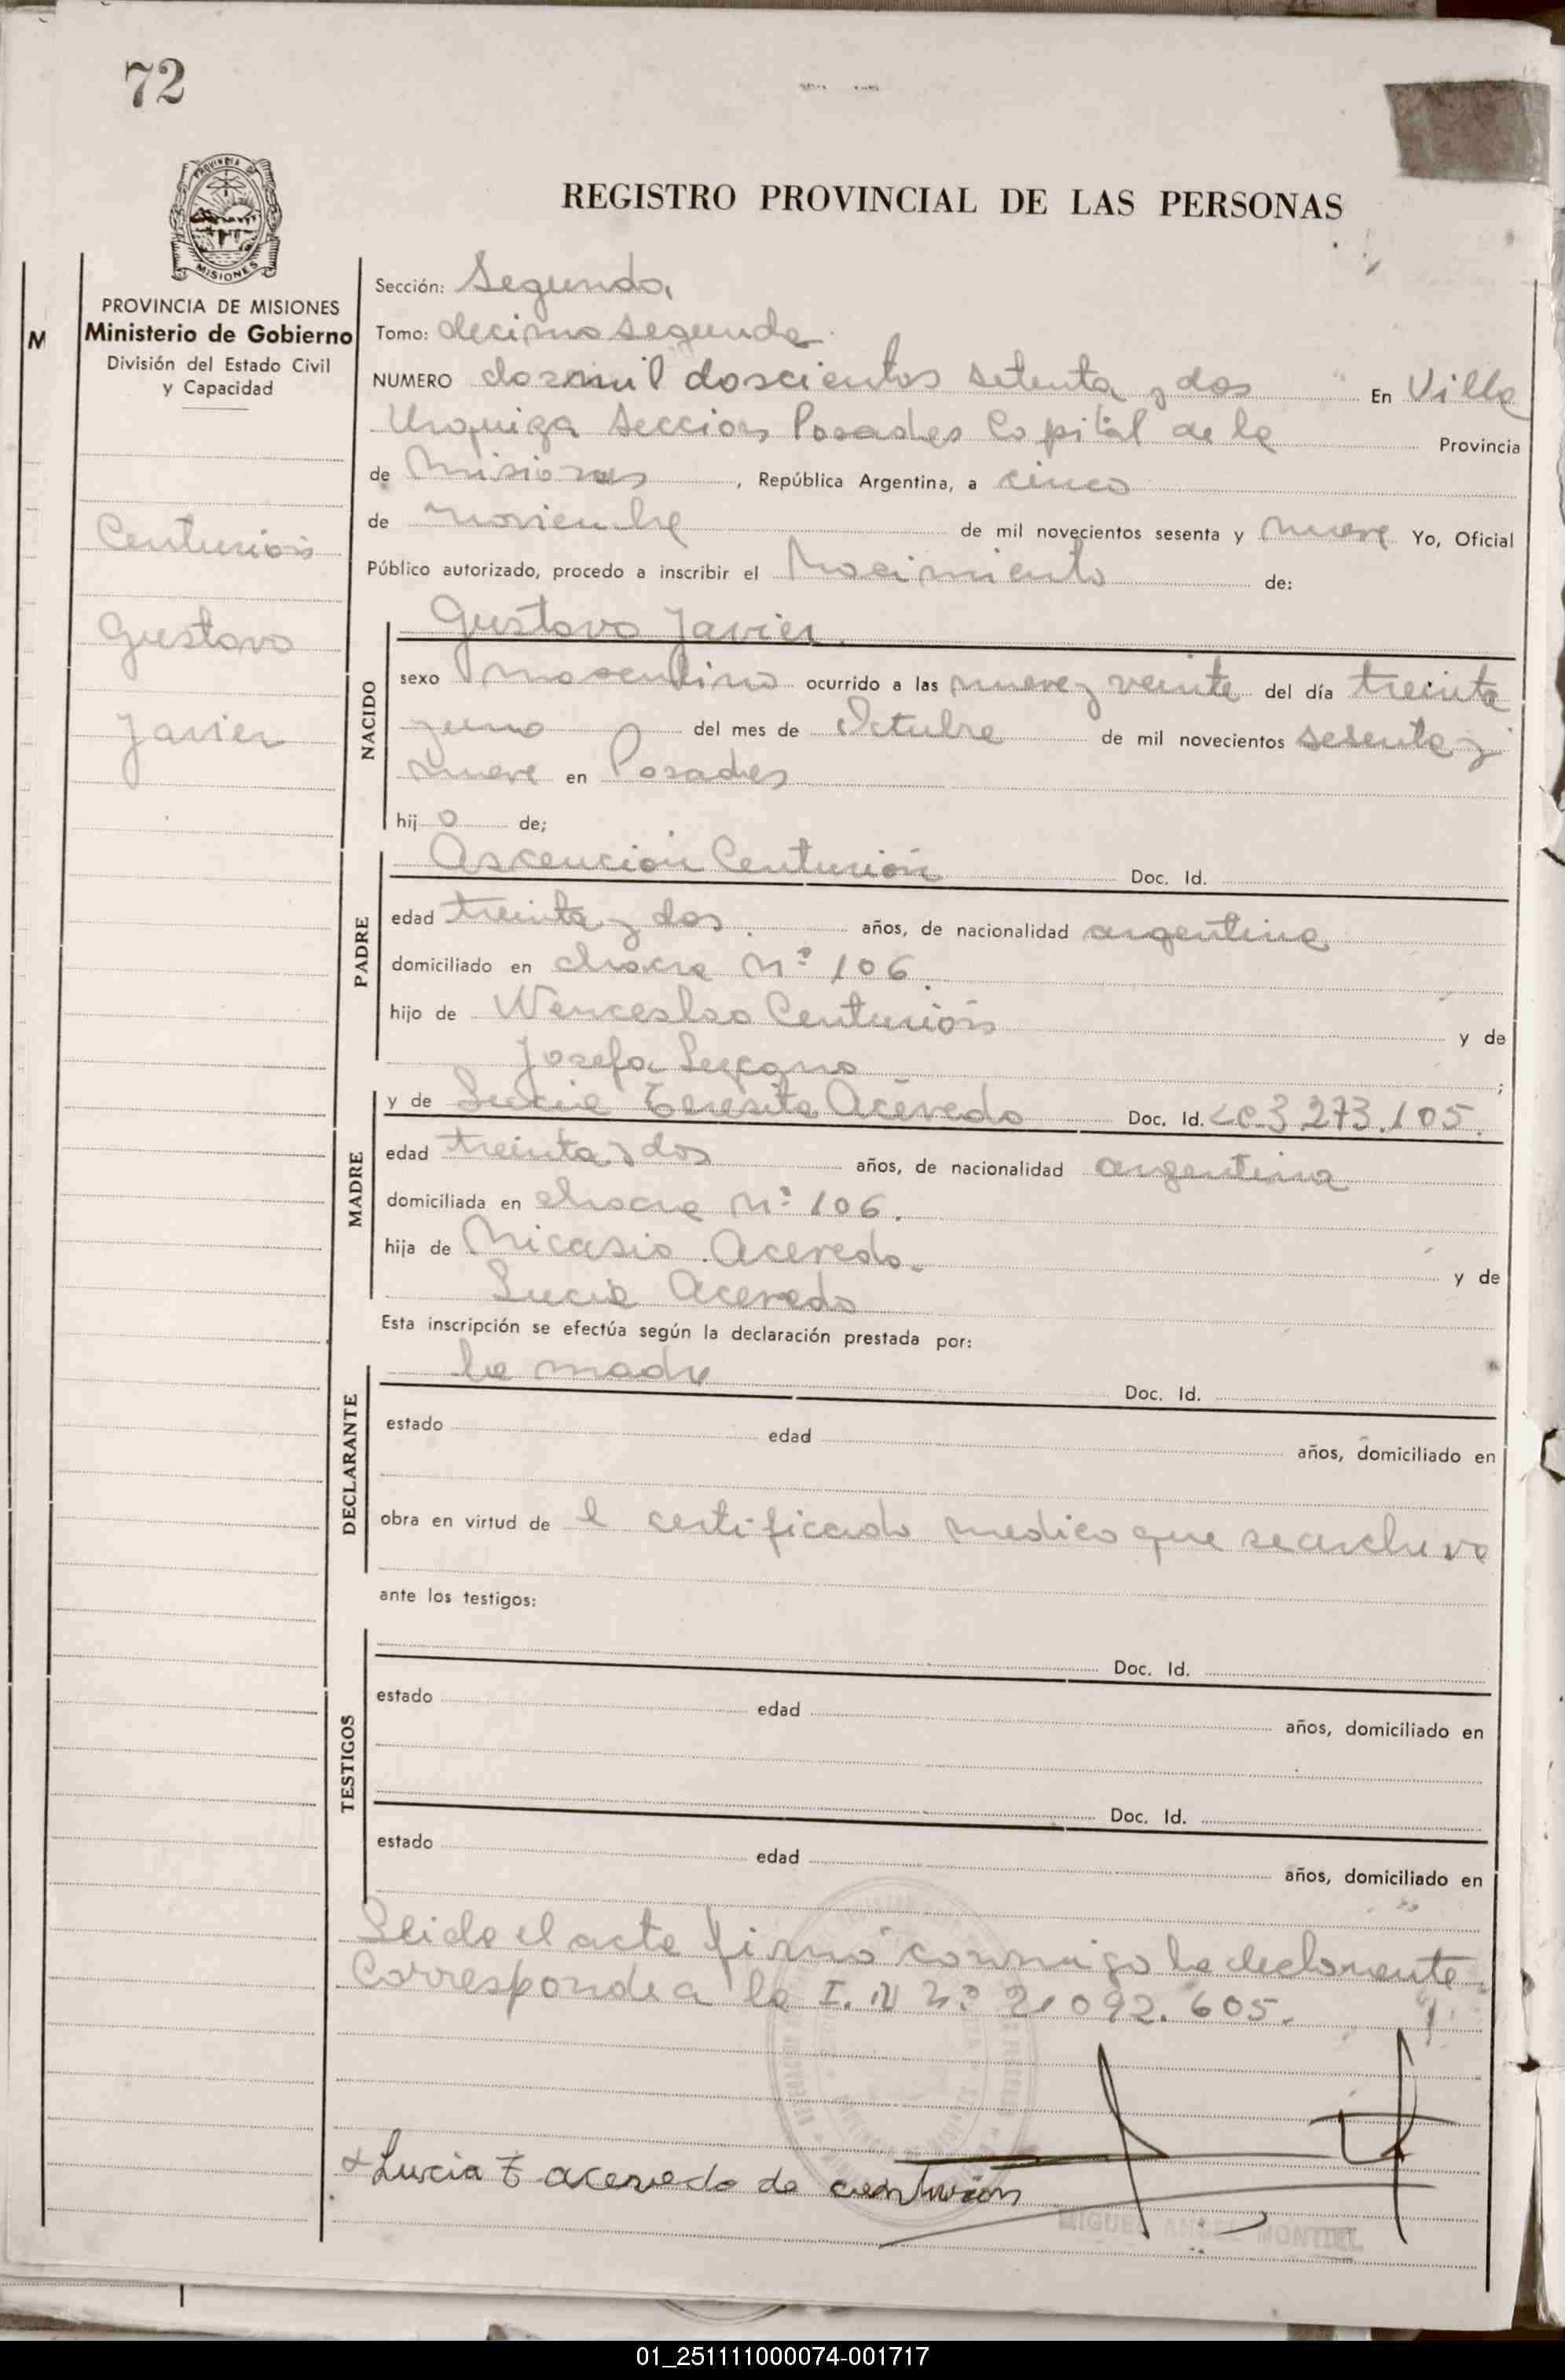 72
PROVINCIA DE
MISIONES
REGISTRO PROVINCIAL DE LAS PERSONAS
PROVINCIA DE MISIONES
Ministerio de Gobierno
División del Estado Civil
y Capacidad
M
Centurión
Gustavo
Javier
Sección: Segunda
Tomo: decimo segundo
NUMERO dos mil doscientos setenta y dos En Villa
Urquiza Seccion Posadas Capital de la Provincia
de Misiones, República Argentina, a cinco
de noviembre de mil novecientos sesenta y nueve Yo, Oficial
Público autorizado, procedo a inscribir el Nacimiento de:
NACIDO
Gustavo Javier
sexo masculino ocurrido a las nueve y veinte del día treinta
y uno del mes de Octubre de mil novecientos sesenta y
nueve en Posadas
hij o de;
PADRE
Ascencion Centurión Doc. Id.
edad treinta y dos años, de nacionalidad argentina
domiciliado en chacra Nº 106
hijo de Wenceslao Centurión y de
Josefa ;
MADRE
y de Lucia Teresita Acevedo Doc. Id. LC 3.273.105.
edad treinta y dos años, de nacionalidad argentina
domiciliada en chacra Nº 106.
hija de Nicasio Acevedo y de
Lucia Acevedo
Esta inscripción se efectúa según la declaración prestada por:
DECLARANTE
la madre Doc. Id.
estado edad años, domiciliado en
obra en virtud de l certificado medico que se archiva
ante los testigos:
TESTIGOS
Doc. Id.
estado edad años, domiciliado en
Doc. Id.
estado edad años, domiciliado en
Leida el acta firmó conmigo la declarante
Corresponde a la I. N Nº 21 092. 605.
Lucia T acevedo de centurión
MIGUEL ANGEL MONTIEL
01_251111000074-001717